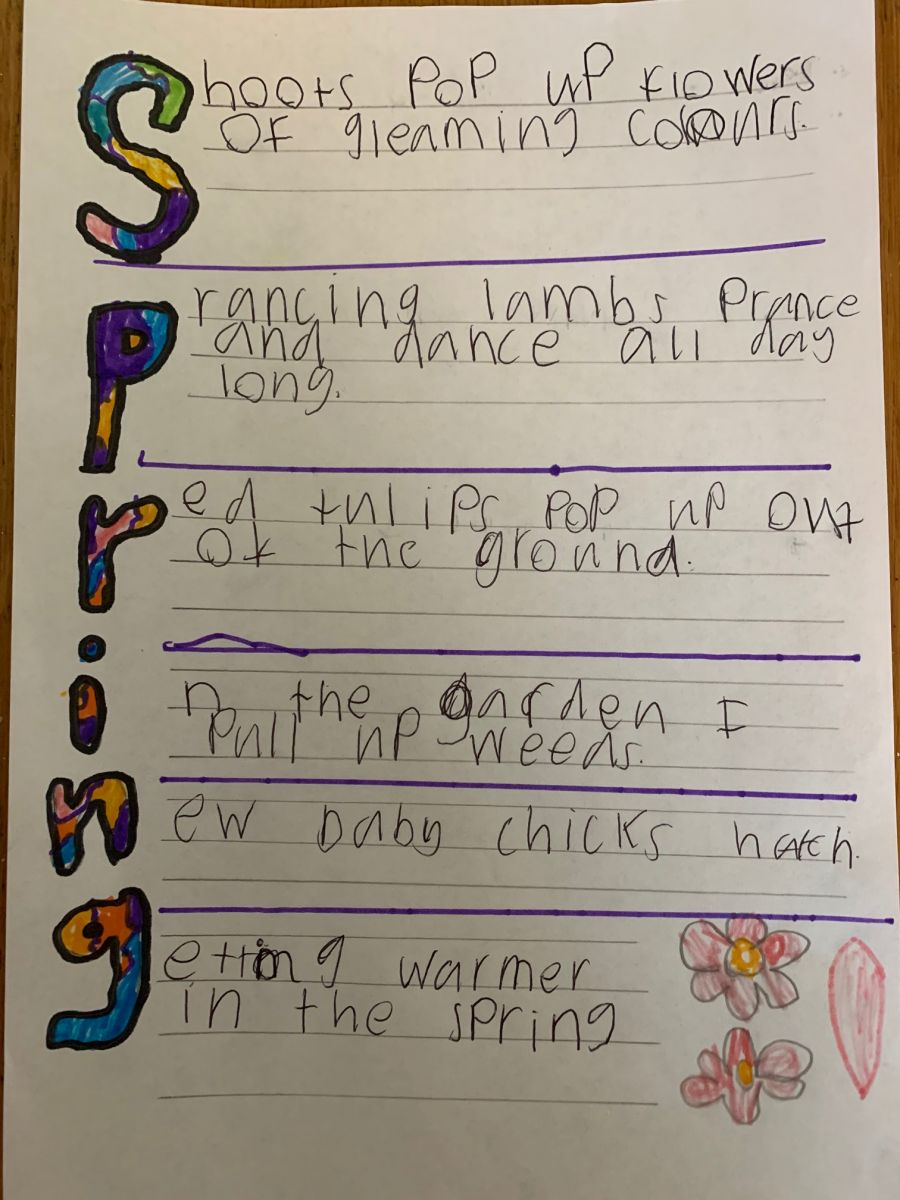 Shoots pop up flowers
of gleaming colours.
Prancing lambs prance
and dance all day
long.
red tulips pop up out
of the ground.
in the garden I
pull up weeds.
new baby chicks hatch.
getting warmer
in the spring